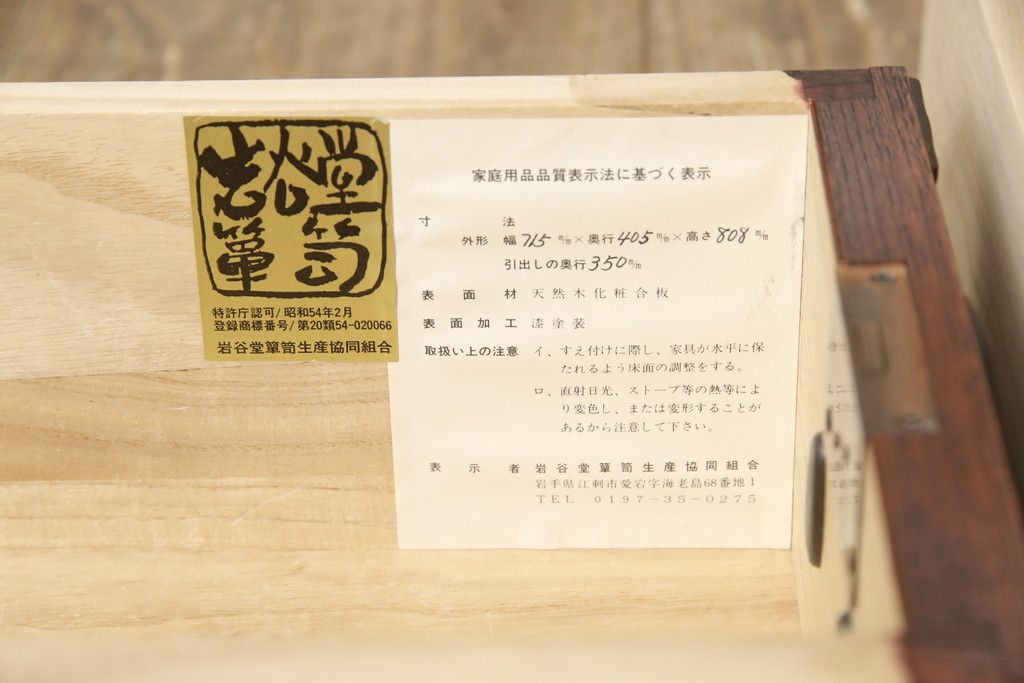 岩谷堂
箪笥
特許庁認可/昭和54年2月
登録商標番号/第20類54-020066
岩谷堂箪笥生産協同組合
家庭用品品質表示法に基づく表示
寸法
外形 幅715m/m×奥行405m/m×高さ808m/m
引出しの奥行350m/m
表面材 天然木化粧合板
表面加工 漆塗装
取扱い上の注意 イ、すえ付けに際し、家具が水平に保
たれるよう床面の調整をする。
ロ、直射日光、ストーブ等の熱等によ
り変色し、または変形することが
あるから注意して下さい。
表示者 岩谷堂箪笥生産協同組合
岩手県江刺市愛宕字海老島68番地1
TEL 0197-35-0275